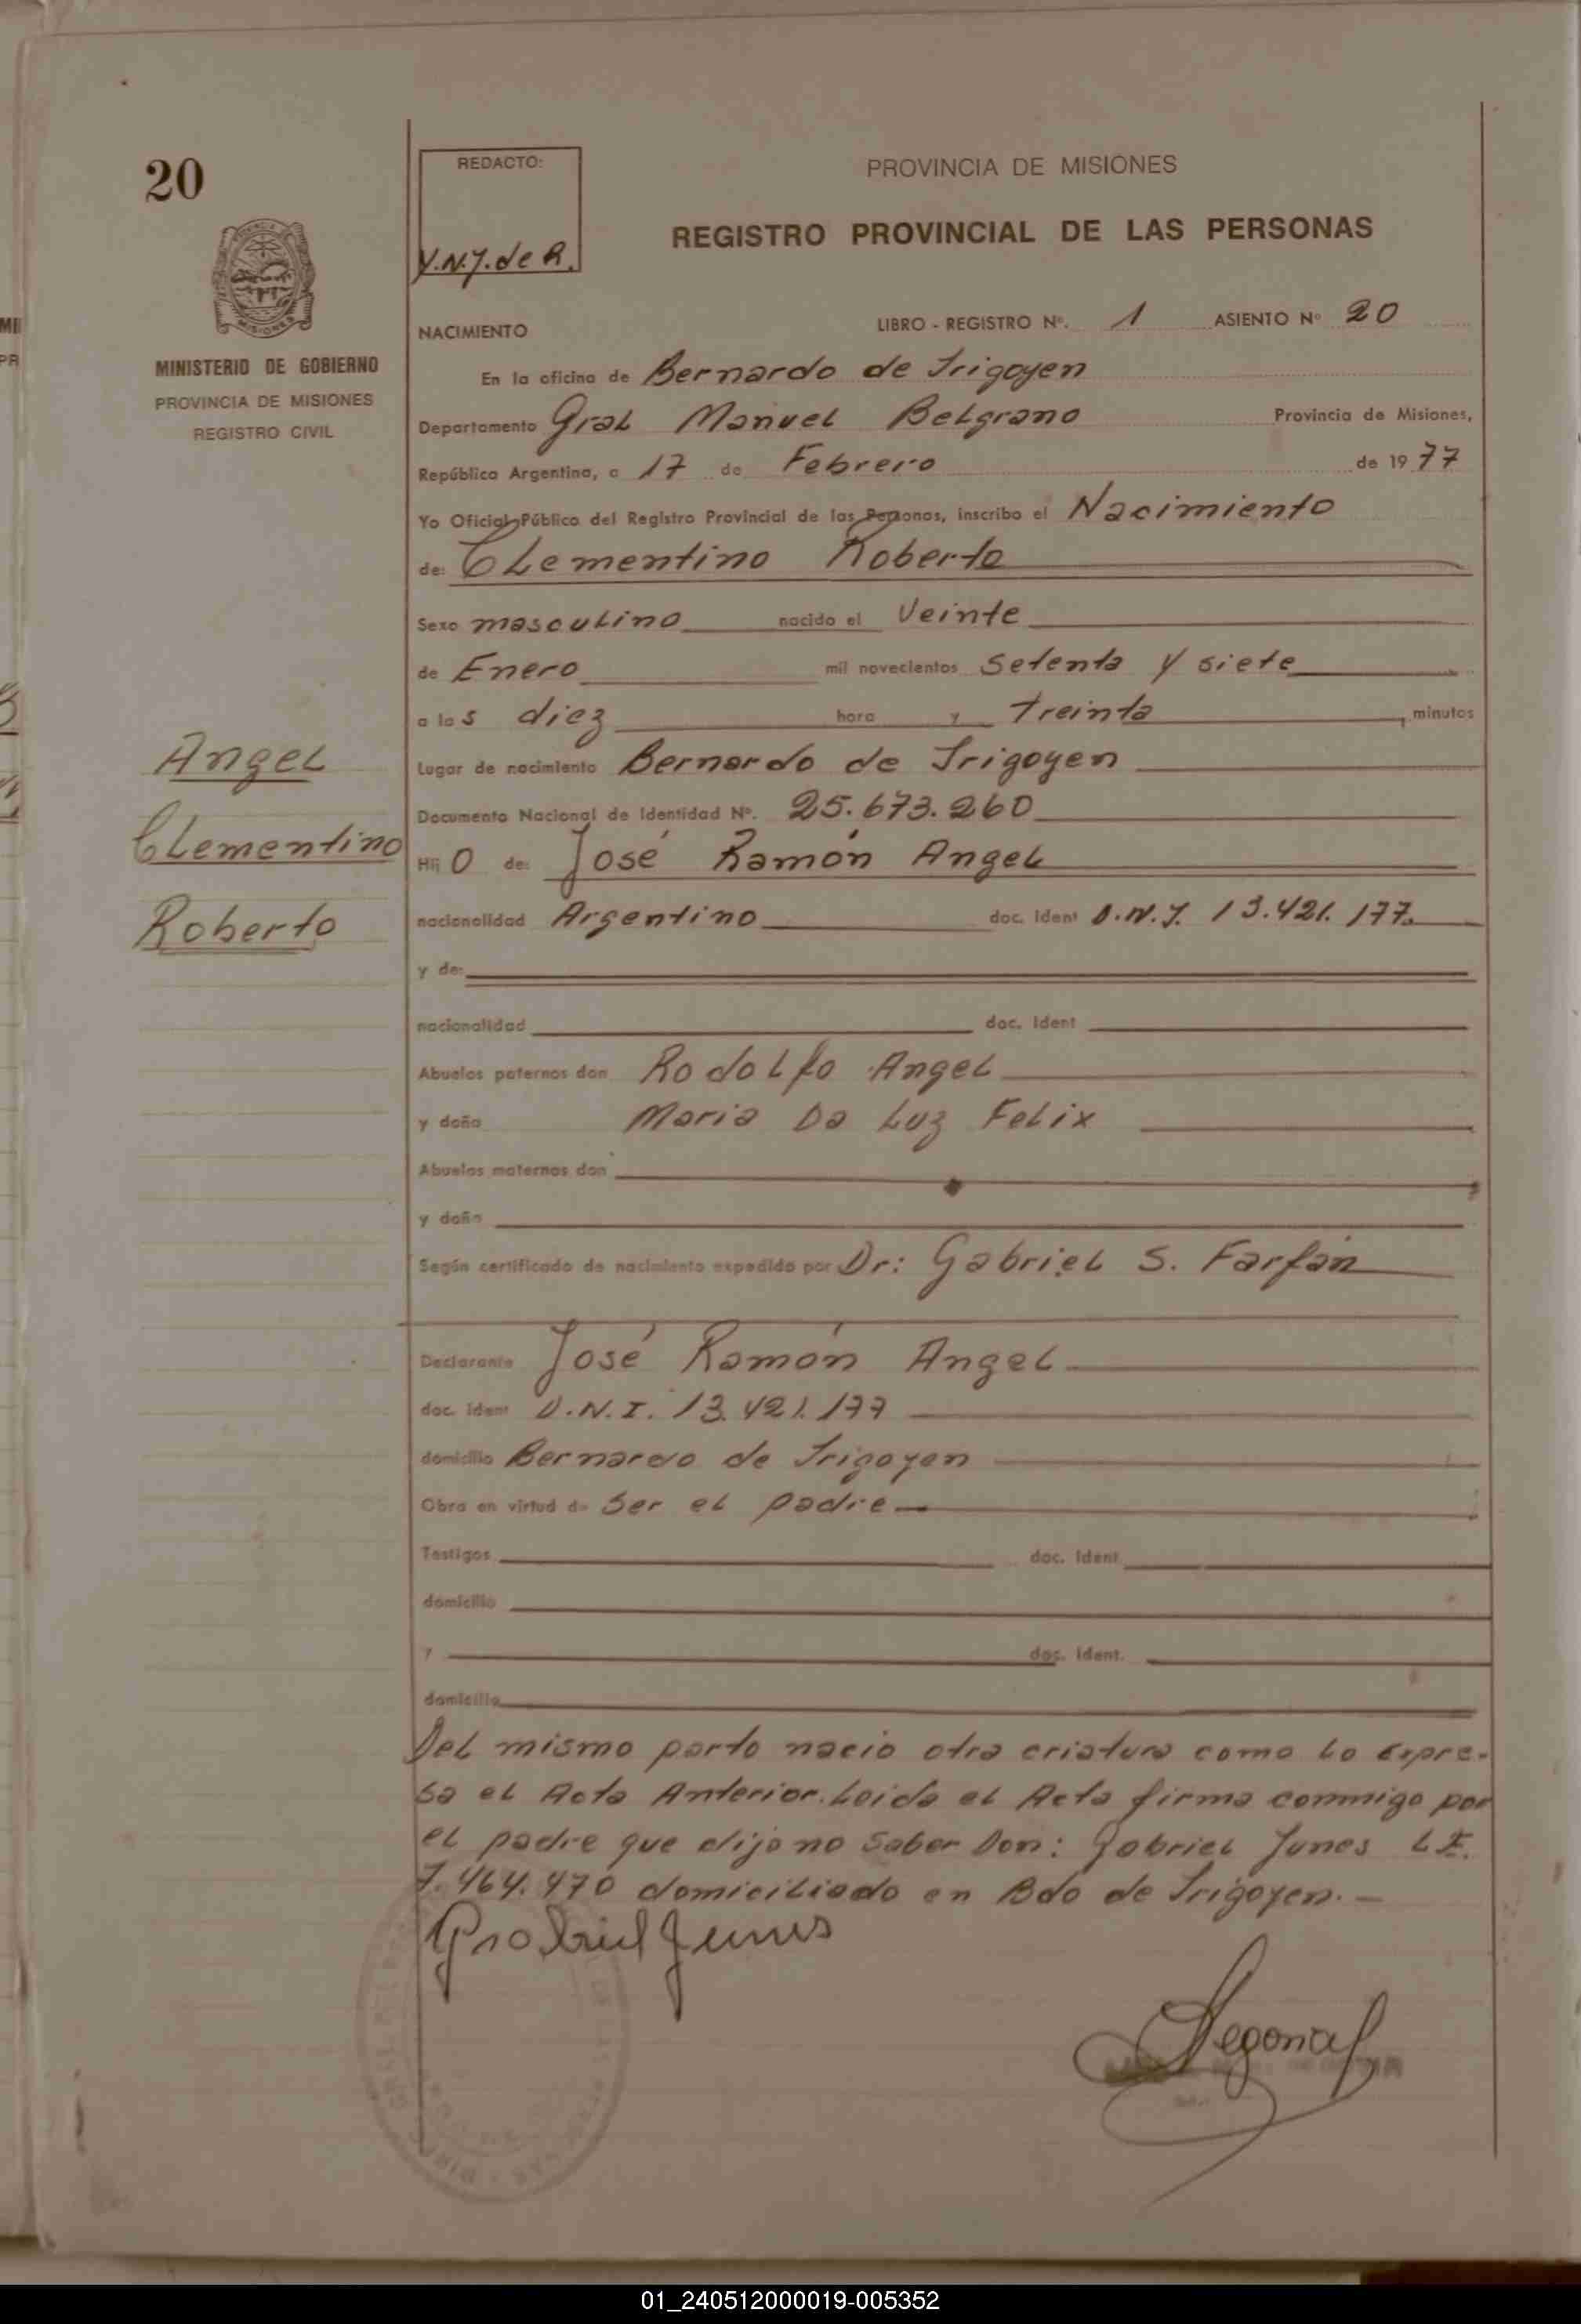 20
REDACTO:
Y.N.J. de R.
PROVINCIA DE MISIONES
REGISTRO PROVINCIAL DE LAS PERSONAS
MINISTERIO DE GOBIERNO
PROVINCIA DE MISIONES
REGISTRO CIVIL
NACIMIENTO LIBRO - REGISTRO Nº. 1 ASIENTO Nº 20
En la oficina de Bernardo de Irigoyen
Departamento Gral Manuel Belgrano Provincia de Misiones,
República Argentina, a 17 de Febrero de 1977
Yo Oficial Público del Registro Provincial de las Personas, inscribo el Nacimiento
de: Clementino Roberto
Sexo masculino nacido el Veinte
de Enero mil novecientos Setenta y siete
a las diez hora y Treinta minutos
Angel
Clementino
Roberto
Lugar de nacimiento Bernardo de Irigoyen
Documento Nacional de Identidad Nº. 25.673.260
Hijo de: José Ramón Angel
nacionalidad Argentino doc. Ident D.N.I. 13.421.177.
y de:
nacionalidad doc. Ident
Abuelos paternos don Rodolfo Angel
y doña Maria Da Luz Felix
Abuelos maternos don
y doña
Según certificado de nacimiento expedido por Dr: Gabriel S. Farfán
Declarante José Ramón Angel
doc. Ident D.N.I. 13.421.177
domicilio Bernardo de Irigoyen
Obra en virtud de Ser el padre
Testigos doc. Ident
domicilio
y doc. Ident.
domicilio
Del mismo parto nacio otra criatura como lo expre-
sa el Acta Anterior. Leida el Acta firma conmigo por
el padre que dijo no Saber Don: Gabriel Junes L.E.
7.464.470 domiciliado en Bdo de Irigoyen. —
Grabriel Junes
01_240512000019-005352